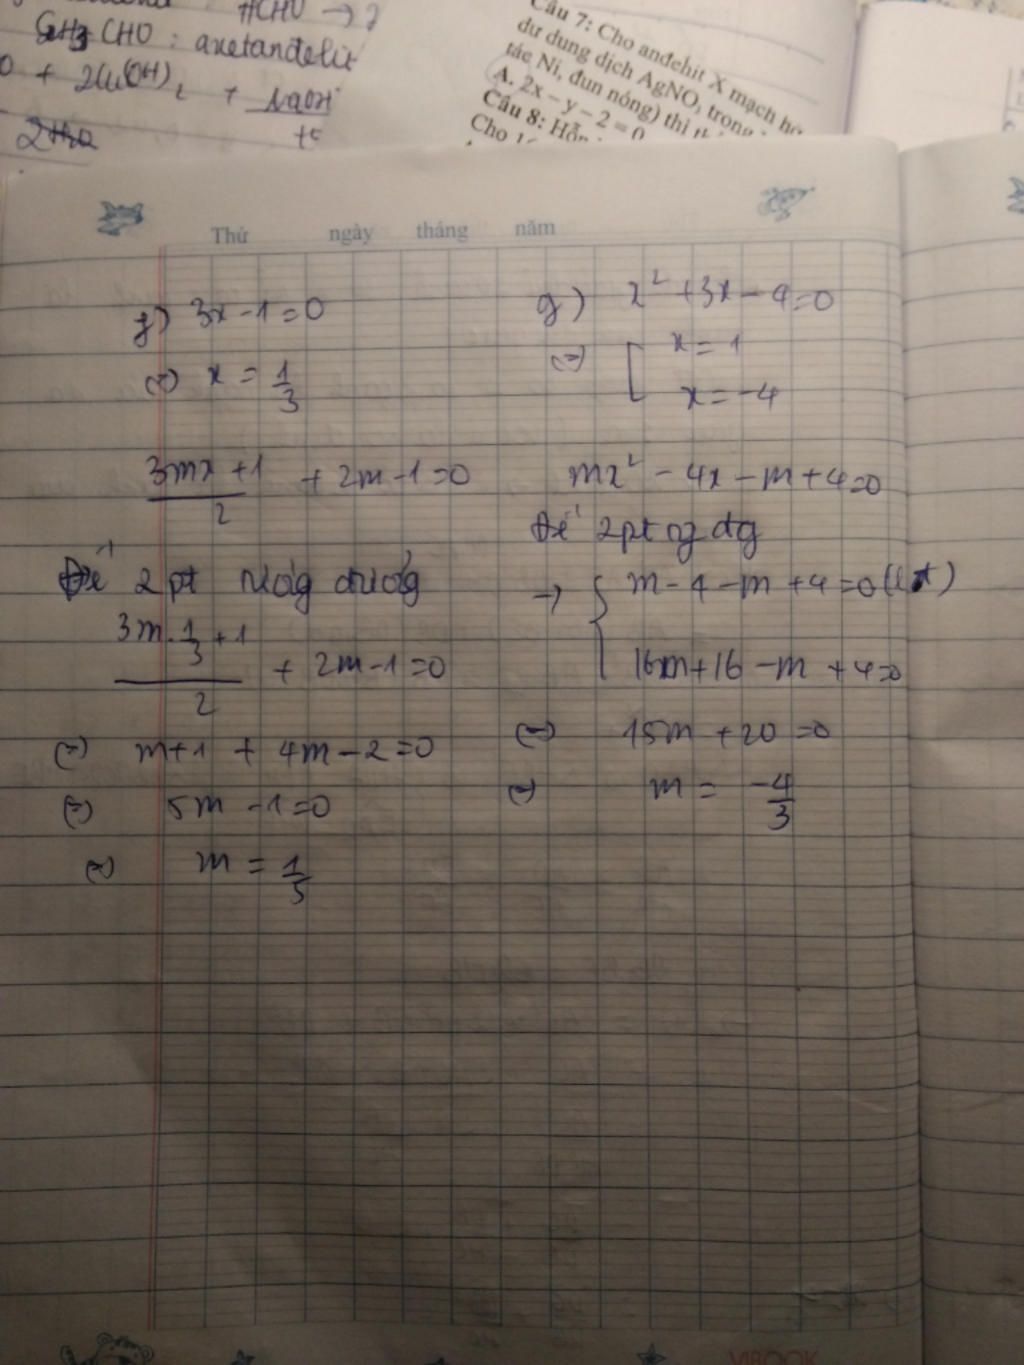 HCHO → 2
CHO : axetanđehit
+ 2Cu(OH)₂ + NaOH
t°
Câu 7: Cho anđehit X mạch hở
dư dung dịch AgNO₃ trong
tác Ni, đun nóng) thì
A. 2x – y – 2 = 0
Câu 8: Hỗn
Cho
Thứ ngày tháng năm
f) 3x - 1 = 0
(=) x = 1/3
(3mx + 1)/2 + 2m - 1 = 0
Để 2 pt tương đương
(3m . 1/3 + 1)/2 + 2m - 1 = 0
(=) m + 1 + 4m - 2 = 0
(=) 5m - 1 = 0
(=) m = 1/5
g) x² + 3x - 4 = 0
(=) [ x = 1
x = -4
mx² - 4x - m + 4 = 0
Để 2 pt tg đg
→ { m - 4 - m + 4 = 0 (lđ)
16m + 16 - m + 4 = 0
(=) 15m + 20 = 0
(=) m = -4/3
VIBOOK